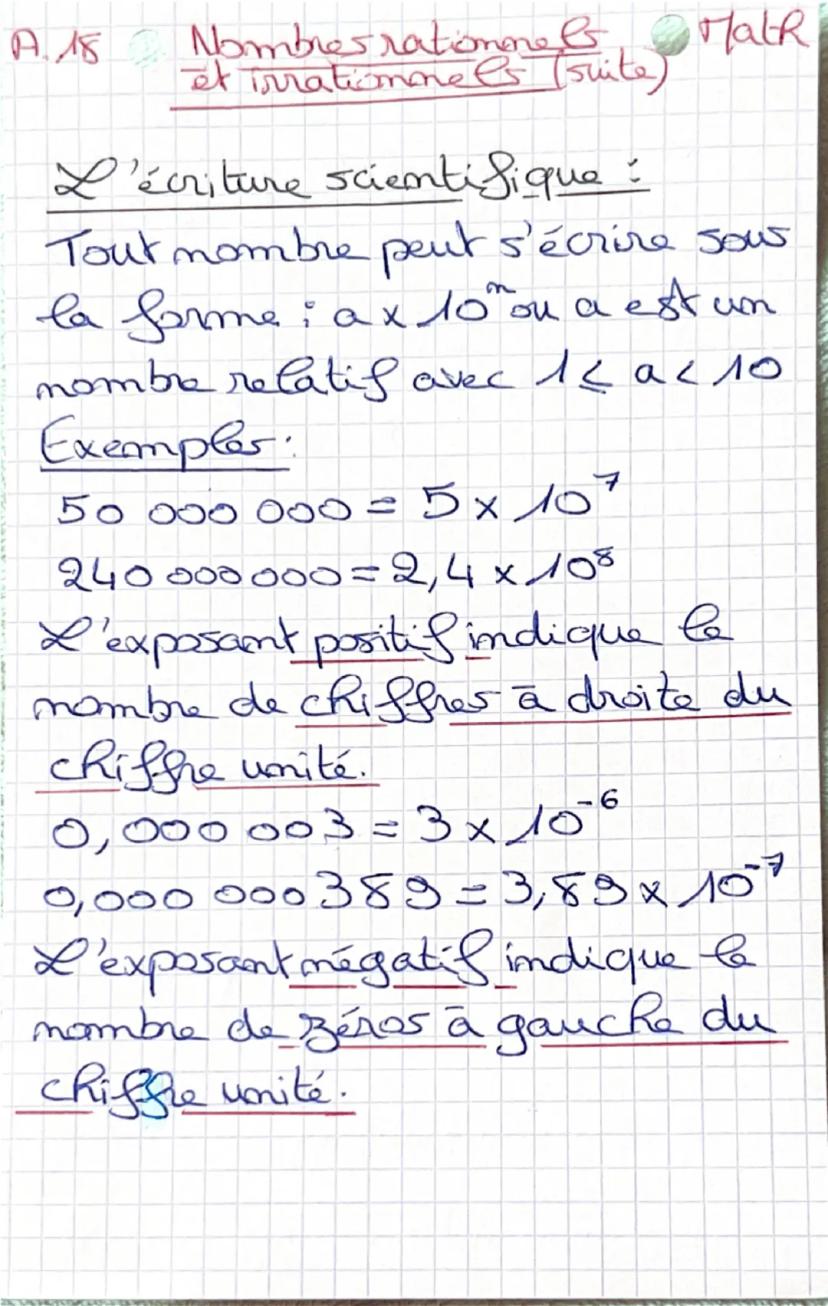 A. 18 Nombres rationnels Math
et irrationnels (suite)
L'écriture scientifique :
Tout nombre peut s'écrire sous
la forme : a x 10ⁿ ou a est un
nombre relatif avec 1 ≤ a < 10
Exemples :
50 000 000 = 5 x 10⁷
240 000 000 = 2,4 x 10⁸
L'exposant positif indique le
nombre de chiffres à droite du
chiffre unité.
0,000 003 = 3 x 10⁻⁶
0,000 000 389 = 3,89 x 10⁻⁷
L'exposant négatif indique le
nombre de zéros à gauche du
chiffre unité.